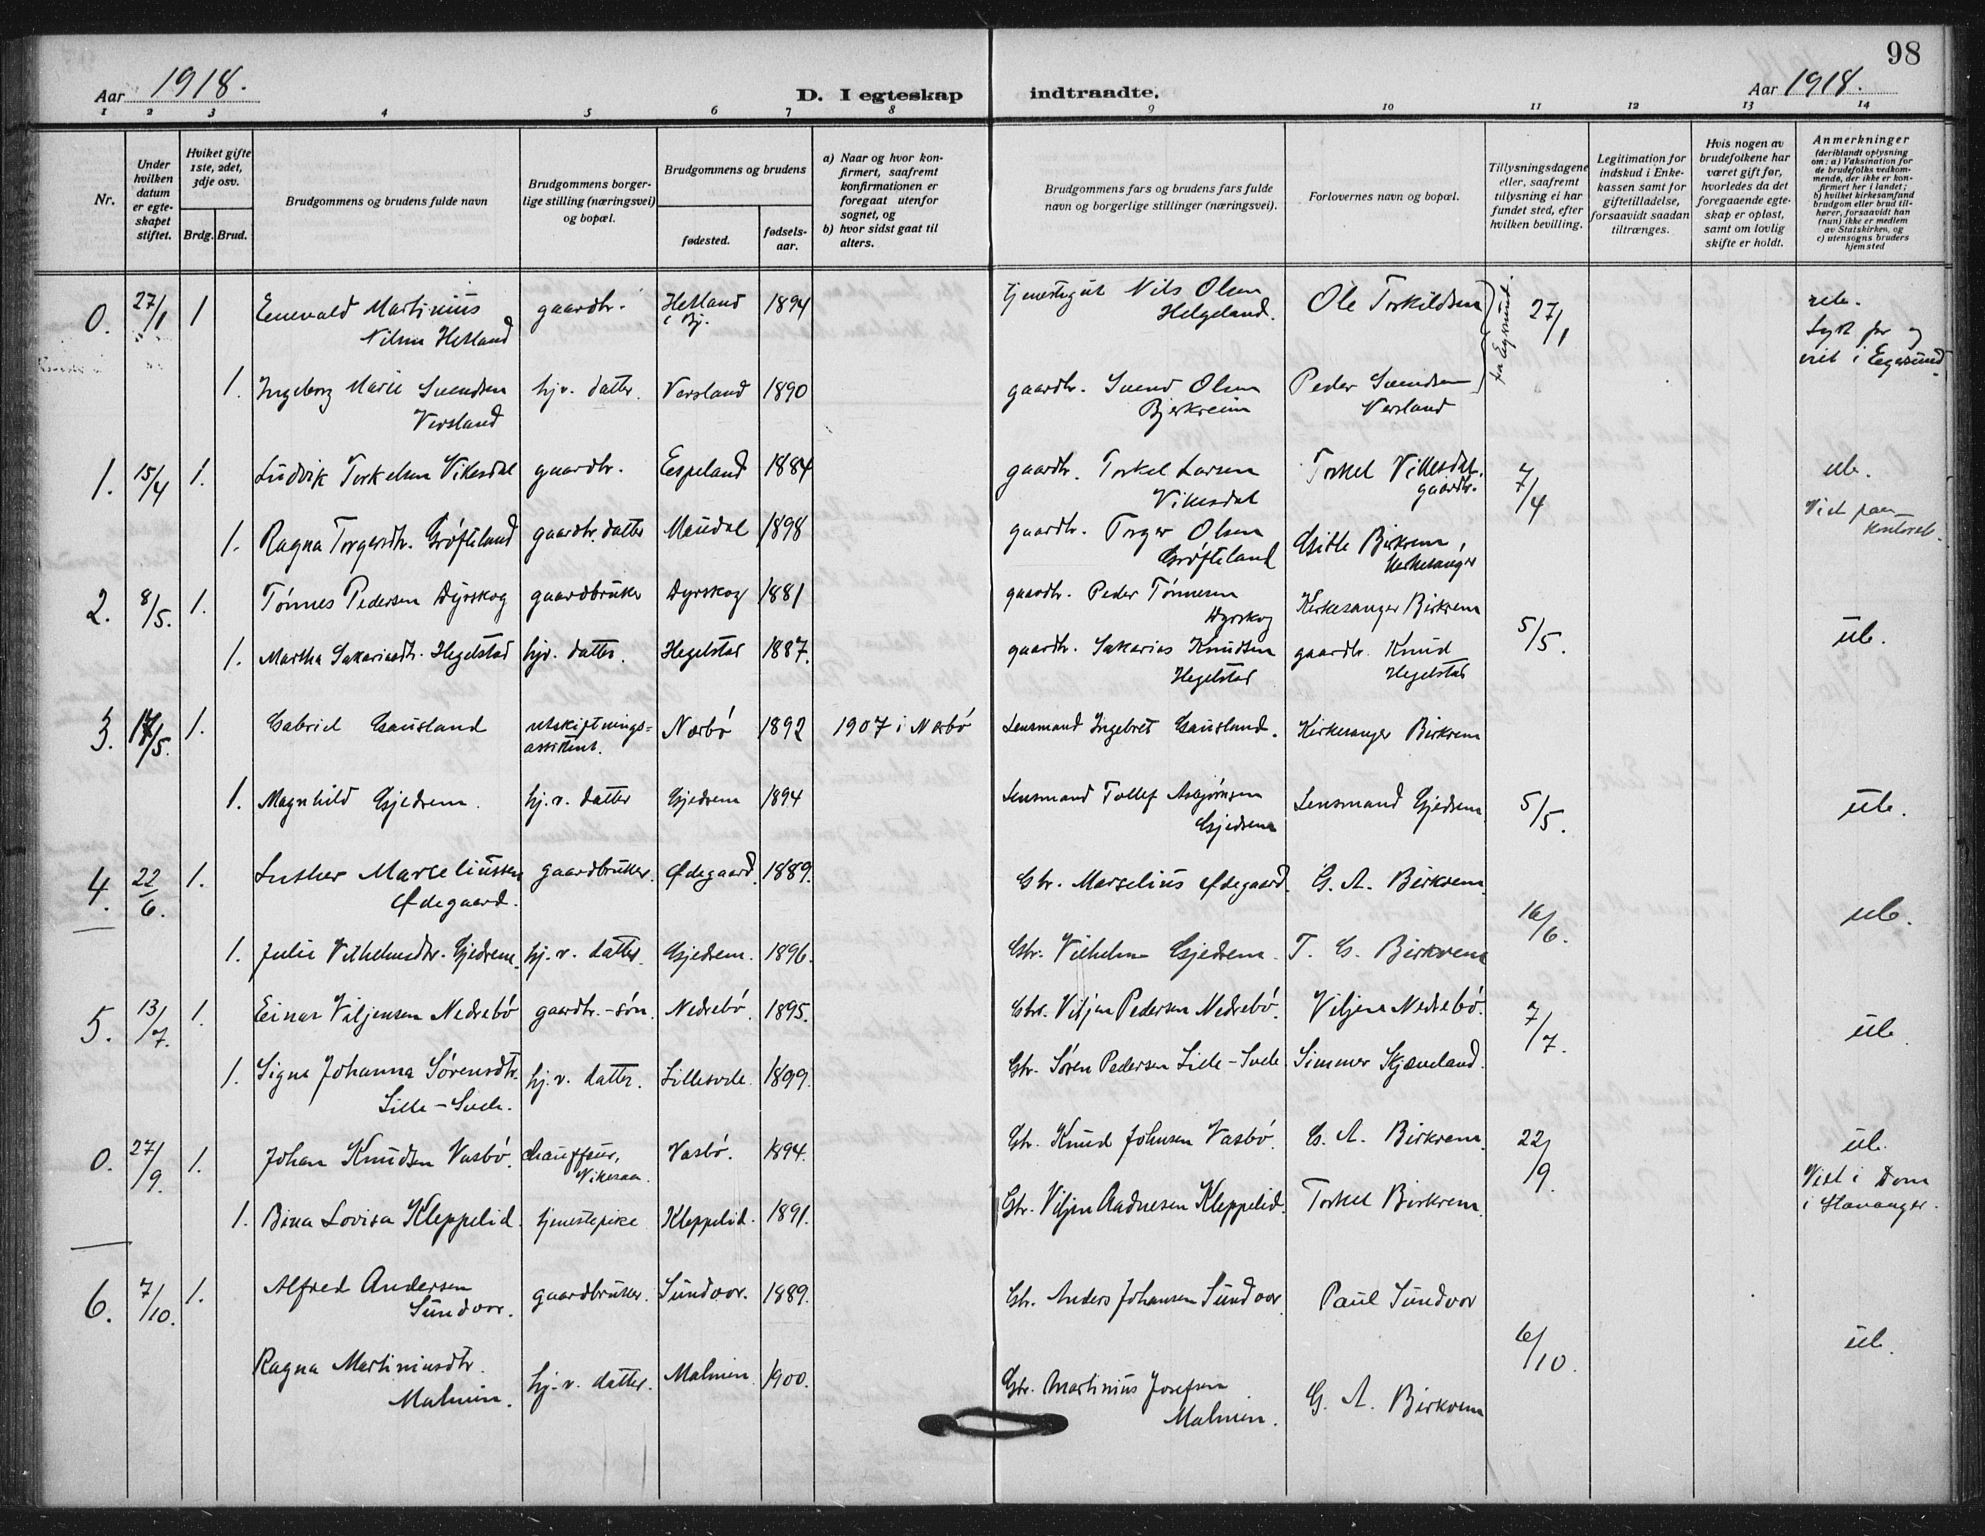 98
Aar 1918.
D. I egteskap indtraadte.
Aar 1918.
1 2 3 4 5 6 7 8 9 10 11 12 13 14
Nr.
Under hvilken datum er egteskapet stiftet.
Hviket gifte 1ste, 2det, 3dje osv.
Brdg. Brud.
Brudgommens og brudens fulde navn
Brudgommens borgerlige stilling (næringsvei) og bopæl.
Brudgommens og brudens
fødested.
fødselsaar.
a) Naar og hvor konfirmert, saafremt konfirmationen er foregaat utenfor sognet, og
b) hvor sidst gaat til alters.
Brudgommens fars og brudens fars fulde navn og borgerlige stillinger (næringsvei).
Forlovernes navn og bopæl.
Tillysningsdagene eller, saafremt tillysning ei har fundet sted, efter hvilken bevilling.
Legitimation for indskud i Enkekassen samt for giftetilladelse, forsaavidt saadan tiltrænges.
Hvis nogen av brudefolkene har været gift før, hvorledes da det foregaaende egteskap er opløst, samt om lovlig skifte er holdt.
Anmerkninger
(deriblandt oplysning om: a) Vaksination for de brudefolks vedkommende, der ikke er konfirmert her i landet; b) hvilket kirkesamfund brudgom eller brud tilhører, forsaavidt han (hun) ikke er medlem av Statskirken, og c) utensogns bruders hjemsted
0. 27/1 1 Enevald Martinius Nilsen Hetland gaardbr. Hetland i Bj. 1894 tjenestegut Nils Olsen Helgeland. Ole Torkildsen fra Egersund 27/1
Lyst for og viet i Egersund
1. Ingeborg Marie Svendsen Versland hj.v. datter Versland 1890 gaardbr. Svend Olsen Bjerkreim Peder Svendsen Versland
1. 15/4 1. Ludvik Torkelsen Vikesdal gaardbr. Espeland 1884 gaardbr. Torkel Larsen Vikesdal Torkel Vikesdal, gaardbr. 7/4 ub.
Viet paa kontoret.
1. Ragna Torgersdtr. Grøfteland gaardbr. datter Maudal 1898 gaardbr. Torger Olsen Grøfteland Gitle Birkrem, kirkesanger
2. 8/5. 1. Tønnes Pedersen Dyrskog gaardbruker Dyrskog 1881 gaardbr. Peder Tønnesen Dyrskog Kirkesanger Birkrem 5/5. ub.
1. Martha Sakariasdtr. Hegelstad hjv. datter. Hegelstad 1887. gaardbr. Sakarias Knudsen Hegelstad gaardbr. Knud Hegelstad
3. 17/5. 1. Gabriel Gausland utskiftningsassistent. Nærbø 1892 1907 i Nærbø Lensmand Ingebret Gausland. Kirkesanger Birkrem
1. Magnhild Gjedrem. hj.v. datter Gjedrem 1894 Lensmand Tollef Asbjørnsen Gjedrem Lensmand Gjedrem 5/5. ub.
4. 22/6. 1. Luther Marceliussen Ødegaard. gaardbruker. Ødegaard. 1889. Gbr. Marselius Ødegaard. G. A. Birkrem. 16/6. ub.
1. Julie Vilhelmsdtr. Gjedrem. hj.v. datter. Gjedrem. 1896. Gbr. Vilhelm Gjedrem. T. G. Birkrem
5. 13/7. 1. Einar Viljensen Nedrebø gaardbr.-søn. Nedrebø. 1895. Gbr. Viljen Pedersen Nedrebø. Viljen Nedrebø. 7/7. ub.
1. Signe Johanna Sørensdtr. Lille-Svele. hj.v. datter. Lillesvele. 1899. Gbr. Søren Pedersen Lille-Svele Simmer Skjæveland.
0. 27/9. 1. Johan Knudsen Vasbø. chauffeur, Vikesaa. Vasbø. 1894. Gbr. Knud Johnsen Vasbø. G. A. Birkrem. 22/9. ub.
Viet i Dom i Stavanger.
1. Bina Lovisa Kleppelid. tjenestepike Kleppelid. 1891. Gbr. Viljen Aadnesen Kleppelid. Torkel Birkrem.
6. 7/10. 1. Alfred Andersen Sundvor. gaardbruker. Sundvor. 1889. Gbr. Anders Johansen Sundvor Paul Sundvor 6/10. ub.
Ragna Martiniusdtr. Malmin. hj.v. datter. Malmin. 1900. Gbr. Martinius Josefsen Malmin. G. A. Birkrem